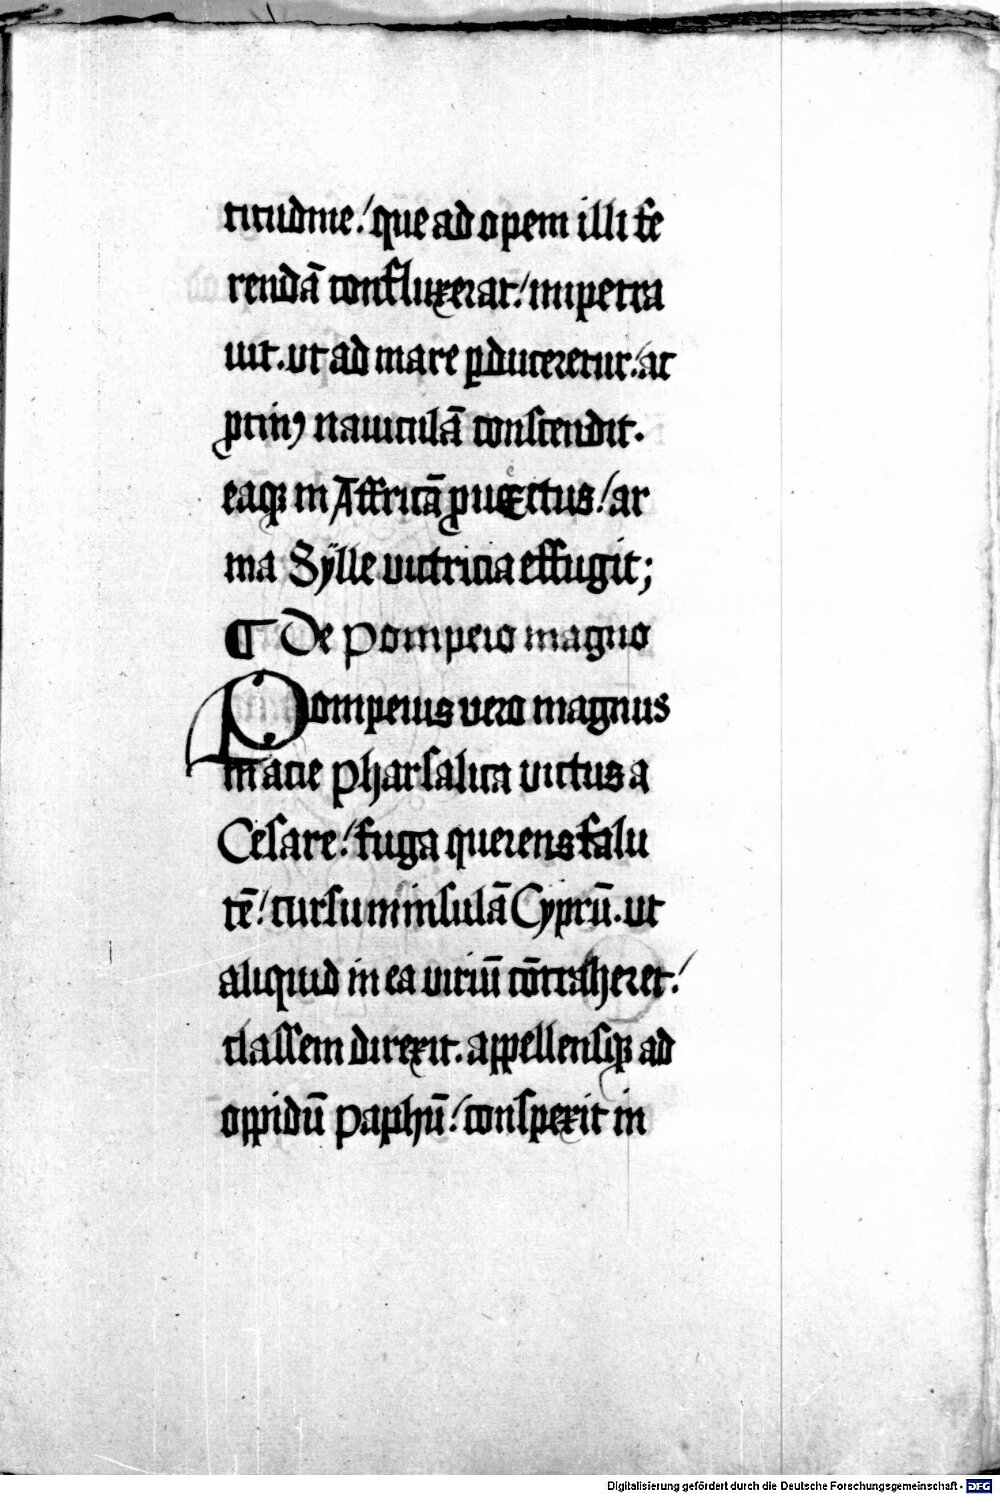 titudine / que ad opem illi fe
rendā confluxerat / impetra
uit . ut ad mare ꝑduceretur / ac
ꝓtinꝰ nauiculā conscendit .
eaqꝫ in Affricā ꝑuectus / ar
ma Sÿlle uictricia effugit ;
¶ De Pompeio magno
Pompeius vero magnus
in acie Pharsalica uictus a
Cesare / fuga querens salu
tē / cursum in insulā Cyprū . ut
aliquid in ea uiriū cōtraheret /
classem direxit . appellensqꝫ ad
oppidū Paphū / conspexit in
Digitalisierung gefördert durch die Deutsche Forschungsgemeinschaft - DFG